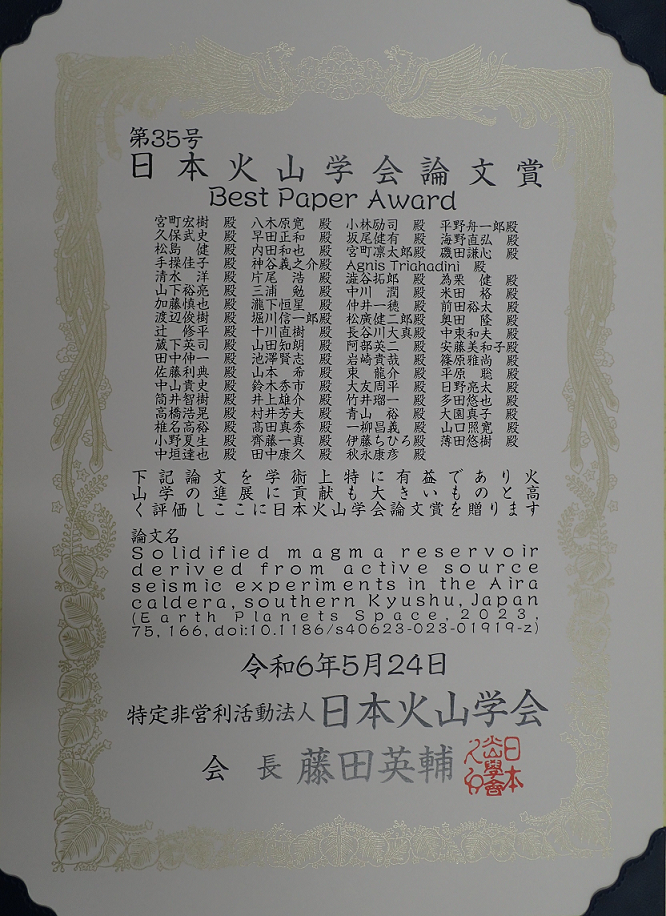 第35号
日本火山学会論文賞
Best Paper Award
宮町宏樹 殿 八木原寛 殿 小林励司 殿 平野舟一郎殿
久保武史 殿 早田正和 殿 坂尾健有 殿 海野直弘 殿
松島 健 殿 内田和也 殿 宮町凛太郎殿 磯田謙心 殿
手操佳子 殿 神谷義之介殿 Agnis Triahadini 殿
清水 洋 殿 片尾 浩 殿 澁谷拓郎 殿 為栗 健 殿
山下裕亮 殿 三浦 勉 殿 中川 潤 殿 米田 格 殿
加藤慎也 殿 瀧下恒星 殿 仲井一穂 殿 前田裕太 殿
渡辺俊樹 殿 堀川信一郎殿 松廣健二郎殿 奥田 隆 殿
辻 修平 殿 十川直樹 殿 長谷川大真殿 中東和夫 殿
蔵下英司 殿 山田知朗 殿 阿部英二 殿 安藤美和子殿
田中伸一 殿 池澤賢志 殿 岩崎貴哉 殿 篠原雅尚 殿
佐藤利典 殿 山本 希 殿 東 龍介 殿 平原 聡 殿
中山貴史 殿 鈴木秀市 殿 大友周平 殿 日野亮太 殿
筒井智樹 殿 井上雄介 殿 竹井瑠一 殿 多田悠也 殿
高橋浩晃 殿 村井芳夫 殿 青山 裕 殿 大園真子 殿
椎名高裕 殿 髙田真秀 殿 一柳昌義 殿 山口照寛 殿
小野夏生 殿 齊藤一真 殿 伊藤ちひろ殿 薄田悠樹 殿
中垣達也 殿 田中康久 殿 秋永康彦 殿
下記論文を学術上特に有益であり火
山学の進展に貢献も大きいものと高
く評価しここに日本火山学会論文賞を贈ります
論文名
Solidified magma reservoir
derived from active source
seismic experiments in the Aira
caldera, southern Kyushu, Japan
(Earth Planets Space, 2023,
75, 166, doi:10.1186/s40623-023-01919-z)
令和6年5月24日
特定非営利活動法人 日本火山学会
会長 藤田英輔
日本
火山學會